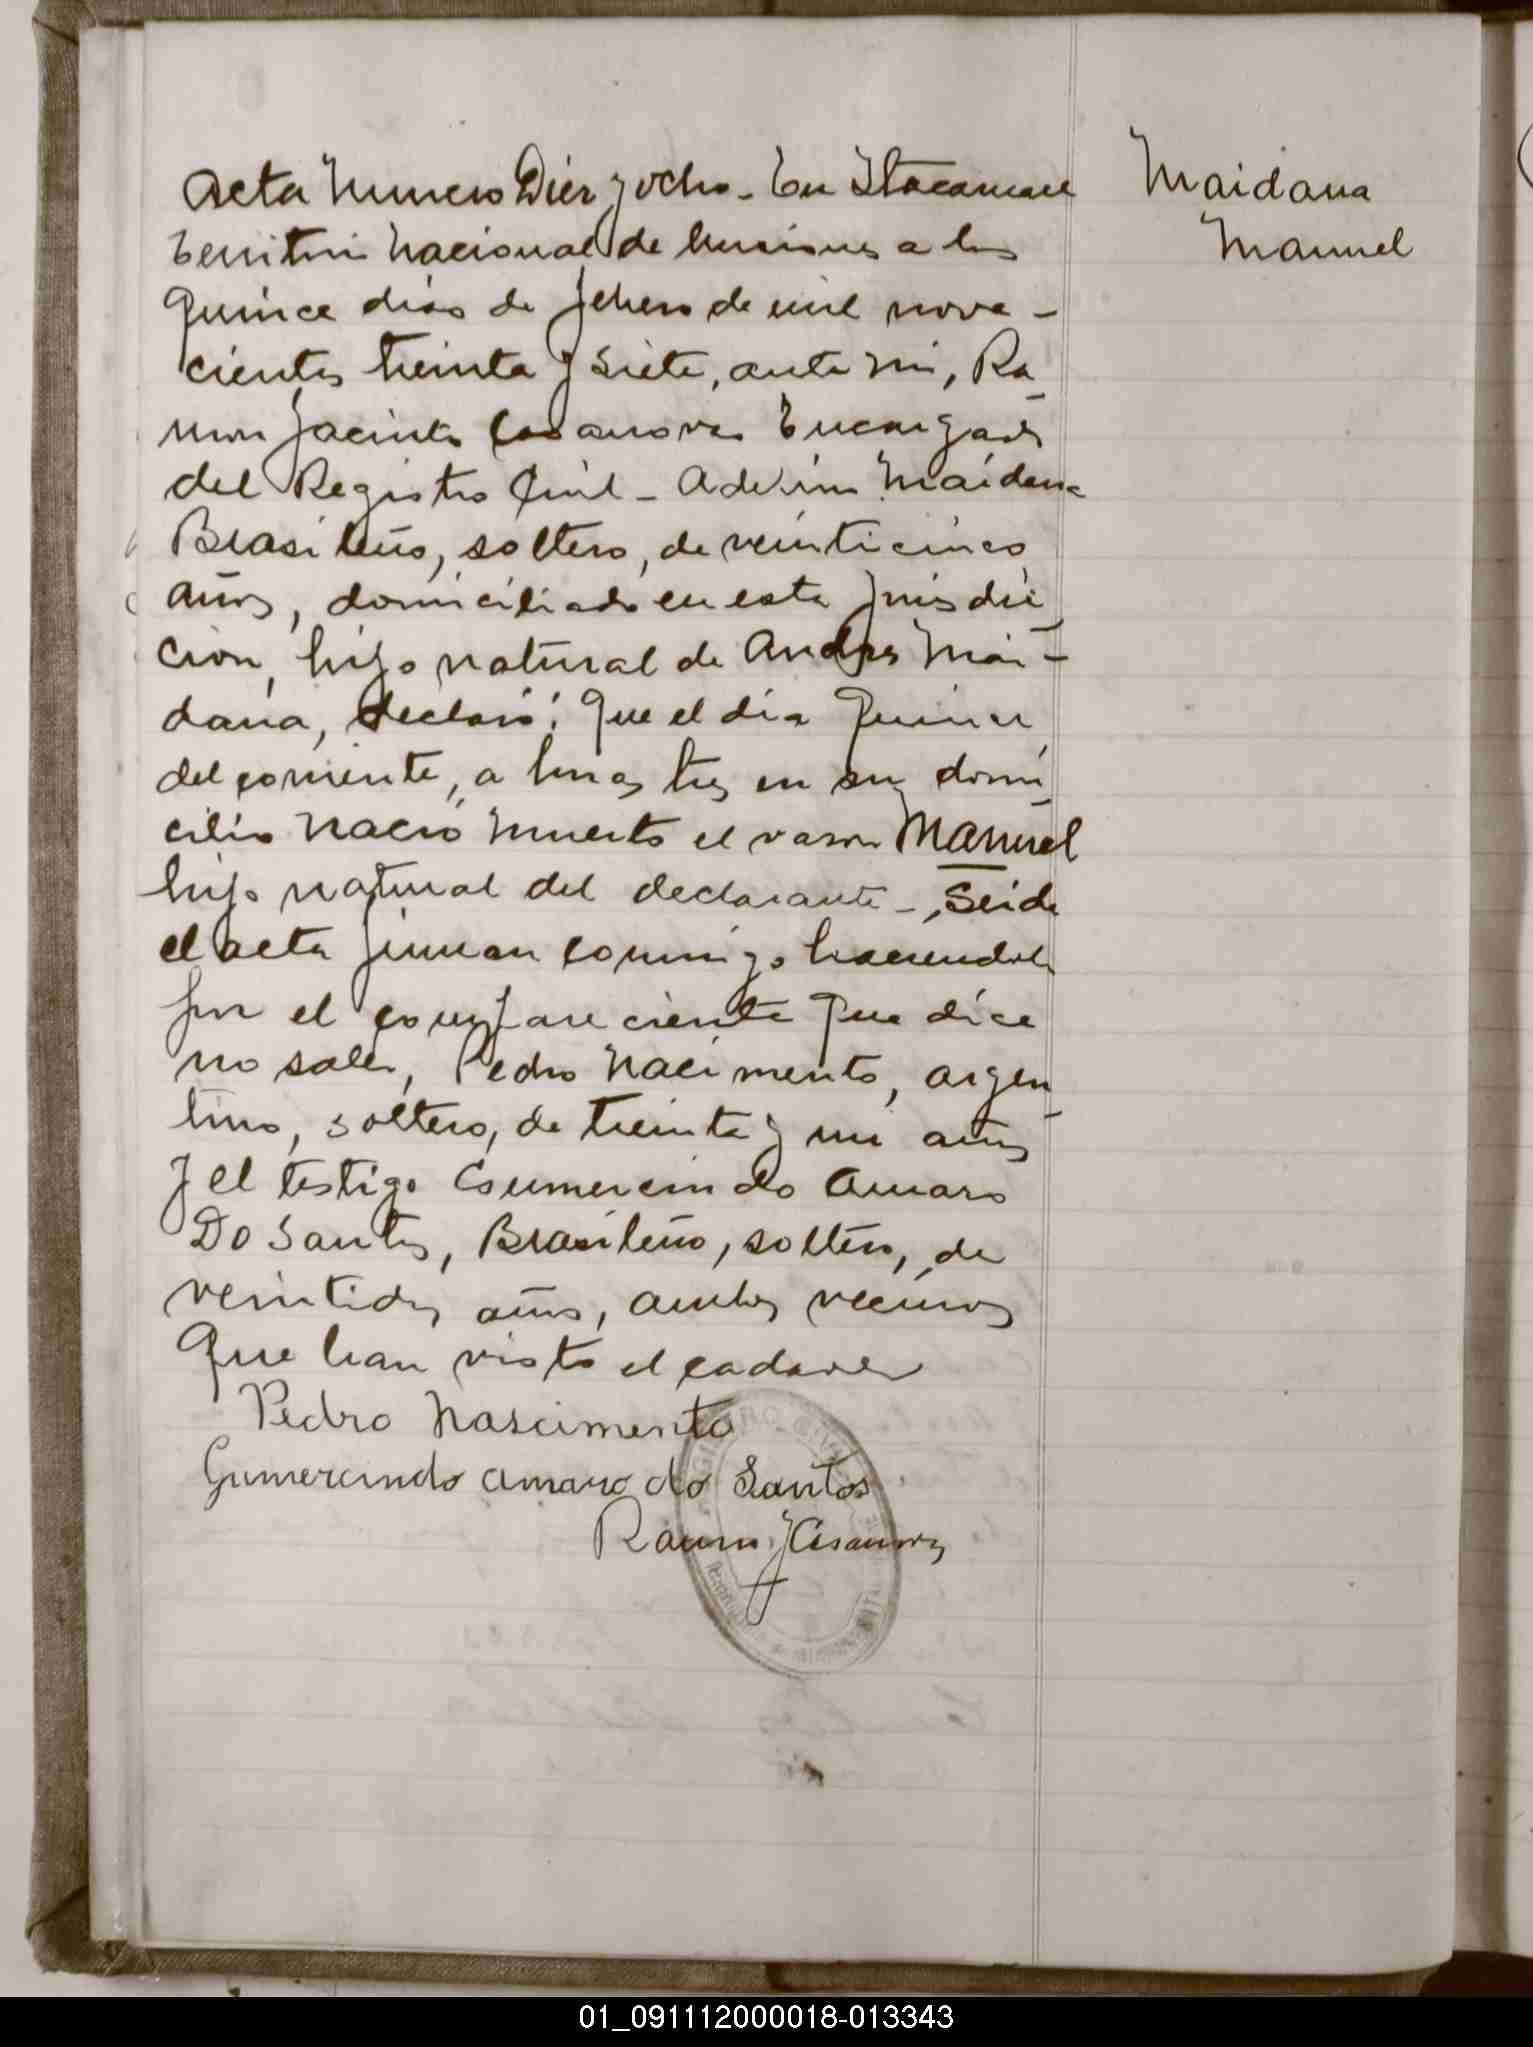 Acta Numero Diez y ocho - En Itacaruaré
Territorio Nacional de Misiones a los
quince dias de febrero de mil nove -
cientos treinta y siete, ante mi, Ra
mon Jacinto Casanova Encargado
del Registro Civil - Adelino Maidana
Brasileño, soltero, de veinticinco
años, domiciliado en esta jurisdic
cion, hijo natural de Andres Mai -
dana, declaró: Que el dia quince
del corriente, a horas tres en su domi
cilio nació muerto el varon Manuel
hijo natural del declarante -, Leida
el acta firman conmigo haciendolo
por el compareciente que dice
no saber, Pedro Nacimento, argen
tino, soltero, de treinta y un años
y el testigo Gumercindo Amaro
Do Santos, Brasileño, soltero, de
veintidos años, ambos vecinos
que han visto el cadaver
Pedro Nascimento
Gumercindo Amaro do Santos
Ramon J Casanova
Maidana
Manuel
REGISTRO CIVIL
01_091112000018-013343